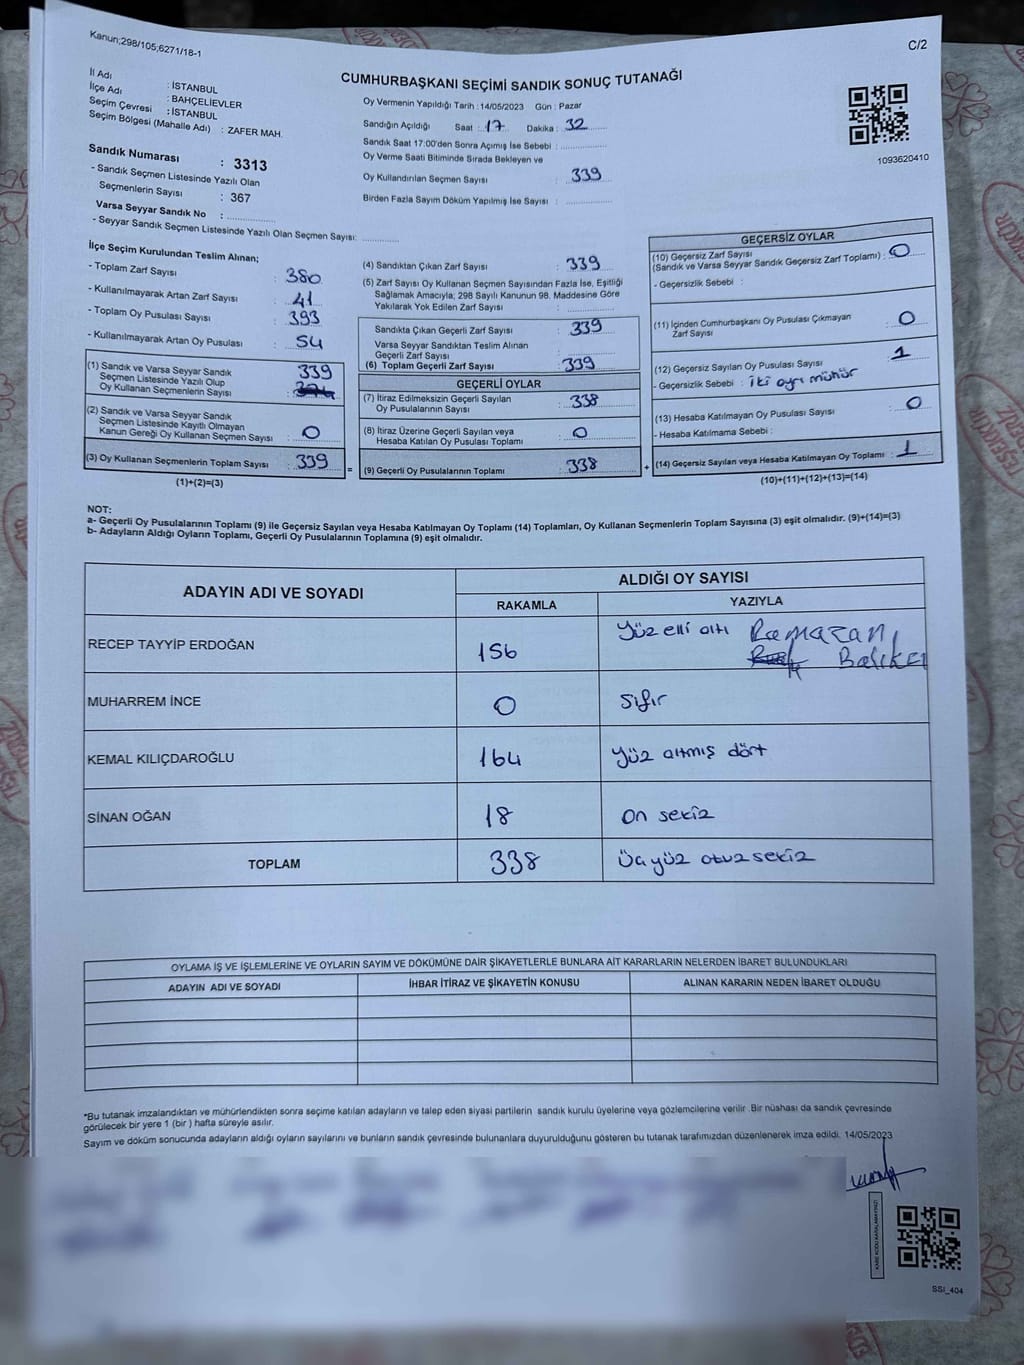 Kanun;298/105;6271/18-1
C/2
CUMHURBAŞKANI SEÇİMİ SANDIK SONUÇ TUTANAĞI
İl Adı : İSTANBUL
İlçe Adı : BAHÇELİEVLER
Seçim Çevresi : İSTANBUL
Seçim Bölgesi (Mahalle Adı) : ZAFER MAH.
Sandık Numarası : 3313
- Sandık Seçmen Listesinde Yazılı Olan
Seçmenlerin Sayısı : 367
Varsa Seyyar Sandık No :
- Seyyar Sandık Seçmen Listesinde Yazılı Olan Seçmen Sayısı:
Oy Vermenin Yapıldığı Tarih : 14/05/2023 Gün : Pazar
Sandığın Açıldığı Saat : 17 Dakika : 32
Sandık Saat 17:00'den Sonra Açımış İse Sebebi :
Oy Verme Saati Bitiminde Sırada Bekleyen ve
Oy Kullandırılan Seçmen Sayısı : 339
Birden Fazla Sayım Döküm Yapılmış İse Sayısı :
1093620410
İlçe Seçim Kurulundan Teslim Alınan;
- Toplam Zarf Sayısı : 380
- Kullanılmayarak Artan Zarf Sayısı : 41
- Toplam Oy Pusulası Sayısı : 393
- Kullanılmayarak Artan Oy Pusulası : 54
(1) Sandık ve Varsa Seyyar Sandık
Seçmen Listesinde Yazılı Olup
Oy Kullanan Seçmenlerin Sayısı : 339
(2) Sandık ve Varsa Seyyar Sandık
Seçmen Listesinde Kayıtlı Olmayan
Kanun Gereği Oy Kullanan Seçmen Sayısı : 0
(3) Oy Kullanan Seçmenlerin Toplam Sayısı : 339
(1)+(2)=(3)
=
(4) Sandıktan Çıkan Zarf Sayısı : 339
(5) Zarf Sayısı Oy Kullanan Seçmen Sayısından Fazla İse, Eşitliği
Sağlamak Amacıyla; 298 Sayılı Kanunun 98. Maddesine Göre
Yakılarak Yok Edilen Zarf Sayısı :
Sandıkta Çıkan Geçerli Zarf Sayısı : 339
Varsa Seyyar Sandıktan Teslim Alınan
Geçerli Zarf Sayısı :
(6) Toplam Geçerli Zarf Sayısı : 339
GEÇERLİ OYLAR
(7) İtiraz Edilmeksizin Geçerli Sayılan
Oy Pusulalarının Sayısı : 338
(8) İtiraz Üzerine Geçerli Sayılan veya
Hesaba Katılan Oy Pusulası Toplamı : 0
(9) Geçerli Oy Pusulalarının Toplamı : 338
+
GEÇERSİZ OYLAR
(10) Geçersiz Zarf Sayısı
(Sandık ve Varsa Seyyar Sandık Geçersiz Zarf Toplamı) : 0
- Geçersizlik Sebebi :
(11) İçinden Cumhurbaşkanı Oy Pusulası Çıkmayan
Zarf Sayısı : 0
(12) Geçersiz Sayılan Oy Pusulası Sayısı : 1
- Geçersizlik Sebebi : iki ayrı mühür
(13) Hesaba Katılmayan Oy Pusulası Sayısı : 0
- Hesaba Katılmama Sebebi :
(14) Geçersiz Sayılan veya Hesaba Katılmayan Oy Toplamı : 1
(10)+(11)+(12)+(13)=(14)
NOT:
a- Geçerli Oy Pusulalarının Toplamı (9) ile Geçersiz Sayılan veya Hesaba Katılmayan Oy Toplamı (14) Toplamları, Oy Kullanan Seçmenlerin Toplam Sayısına (3) eşit olmalıdır. (9)+(14)=(3)
b- Adayların Aldığı Oyların Toplamı, Geçerli Oy Pusulalarının Toplamına (9) eşit olmalıdır.
ADAYIN ADI VE SOYADI
ALDIĞI OY SAYISI
RAKAMLA YAZIYLA
RECEP TAYYİP ERDOĞAN 156 yüz elli altı Ramazan
Balıkçı
MUHARREM İNCE 0 sıfır
KEMAL KILIÇDAROĞLU 164 yüz altmış dört
SİNAN OĞAN 18 on sekiz
TOPLAM 338 üçyüz otuzsekiz
OYLAMA İŞ VE İŞLEMLERİNE VE OYLARIN SAYIM VE DÖKÜMÜNE DAİR ŞİKAYETLERLE BUNLARA AİT KARARLARIN NELERDEN İBARET BULUNDUKLARI
ADAYIN ADI VE SOYADI İHBAR İTİRAZ VE ŞİKAYETİN KONUSU ALINAN KARARIN NEDEN İBARET OLDUĞU
*Bu tutanak imzalandıktan ve mühürlendikten sonra seçime katılan adayların ve talep eden siyasi partilerin sandık kurulu üyelerine veya gözlemcilerine verilir. Bir nüshası da sandık çevresinde
görülecek bir yere 1 (bir ) hafta süreyle asılır.
Sayım ve döküm sonucunda adayların aldığı oyların sayılarını ve bunların sandık çevresinde bulunanlara duyurulduğunu gösteren bu tutanak tarafımızdan düzenlenerek imza edildi. 14/05/2023
KARE KODU KARALAMAYINIZ!
SSİ_404